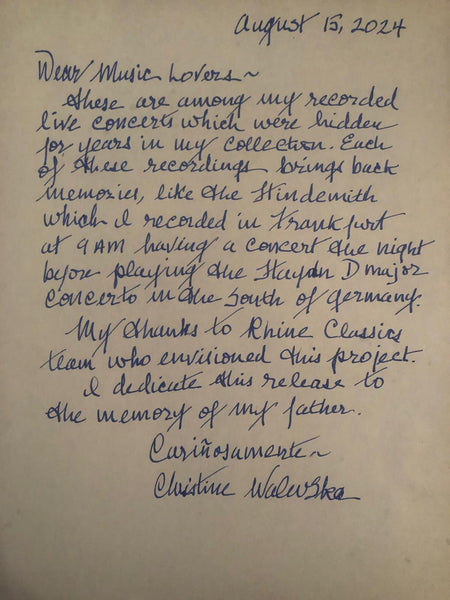 August 15, 2024
Dear Music Lovers~
These are among my recorded
live concerts which were hidden
for years in my collection. Each
of these recordings brings back
memories, like the Hindemith
which I recorded in Frankfurt
at 9 AM having a concert the night
before playing the Haydn D major
Concerto in the South of Germany.
My thanks to Rhine Classics
team who envisioned this project.
I dedicate this release to
the memory of my father.
Cariñosamente~
Christine Walevska